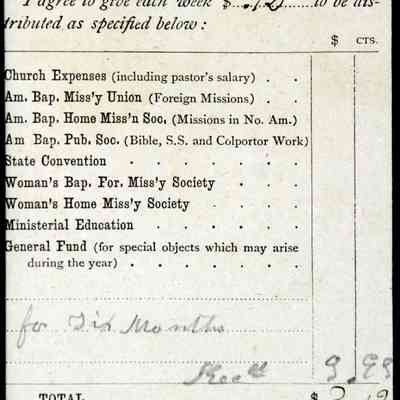 I agree to give each week $ .12 to be dis-
tributed as specified below:
$ CTS.
Church Expenses (including pastor's salary) . .
Am. Bap. Miss'y Union (Foreign Missions) . .
Am. Bap. Home Miss'n Soc. (Missions in No. Am.)
Am Bap. Pub. Soc. (Bible, S.S. and Colportor Work)
State Convention . . . . . .
Woman's Bap. For. Miss'y Society . . .
Woman's Home Miss'y Society . . . .
Ministerial Education . . . . .
General Fund (for special objects which may arise
during the year) . . . . . .
for Six Months
Rec'd
TOTAL $